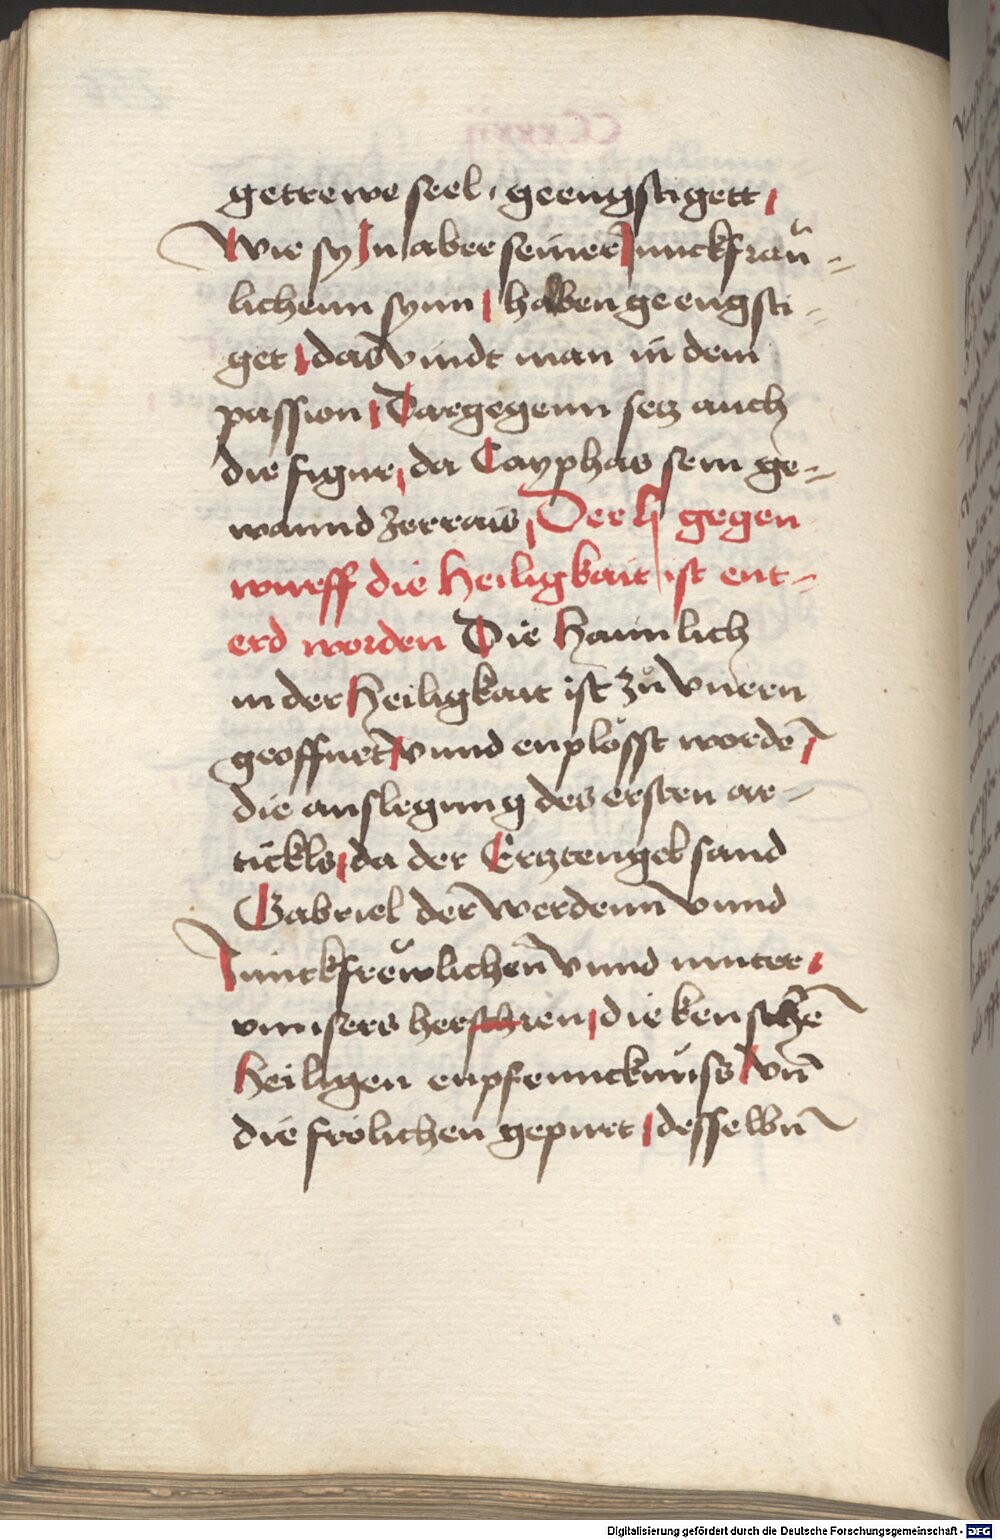 getrewe seel · geengstigett /
Wie sy In aber seiner Junckfraü-
lichenn synn / haben geengsti-
get / das vindt man in dem
passion / Dargegenn setz auch
die figur / da Cayphas sein ge-
wannd zerrais / Der ij gegen
wurff die Heiligkait ist ent-
erd worden Die Haimlich
in der Heiligkait ist zů vneern
geoffnet vnnd enplösst wordē /
die auslegung des ersten ar-
tickls / da der Ertzengel sand
Gabriel der werdenn vnnd
Junckfrewlichen̄ vnnd muter /
vnnsers herschren / die keuschē
Heiligen enpfenncknuss / vn̄
die frölichen gepurt / desselbn̄
Digitalisierung gefördert durch die Deutsche Forschungsgemeinschaft - DFG